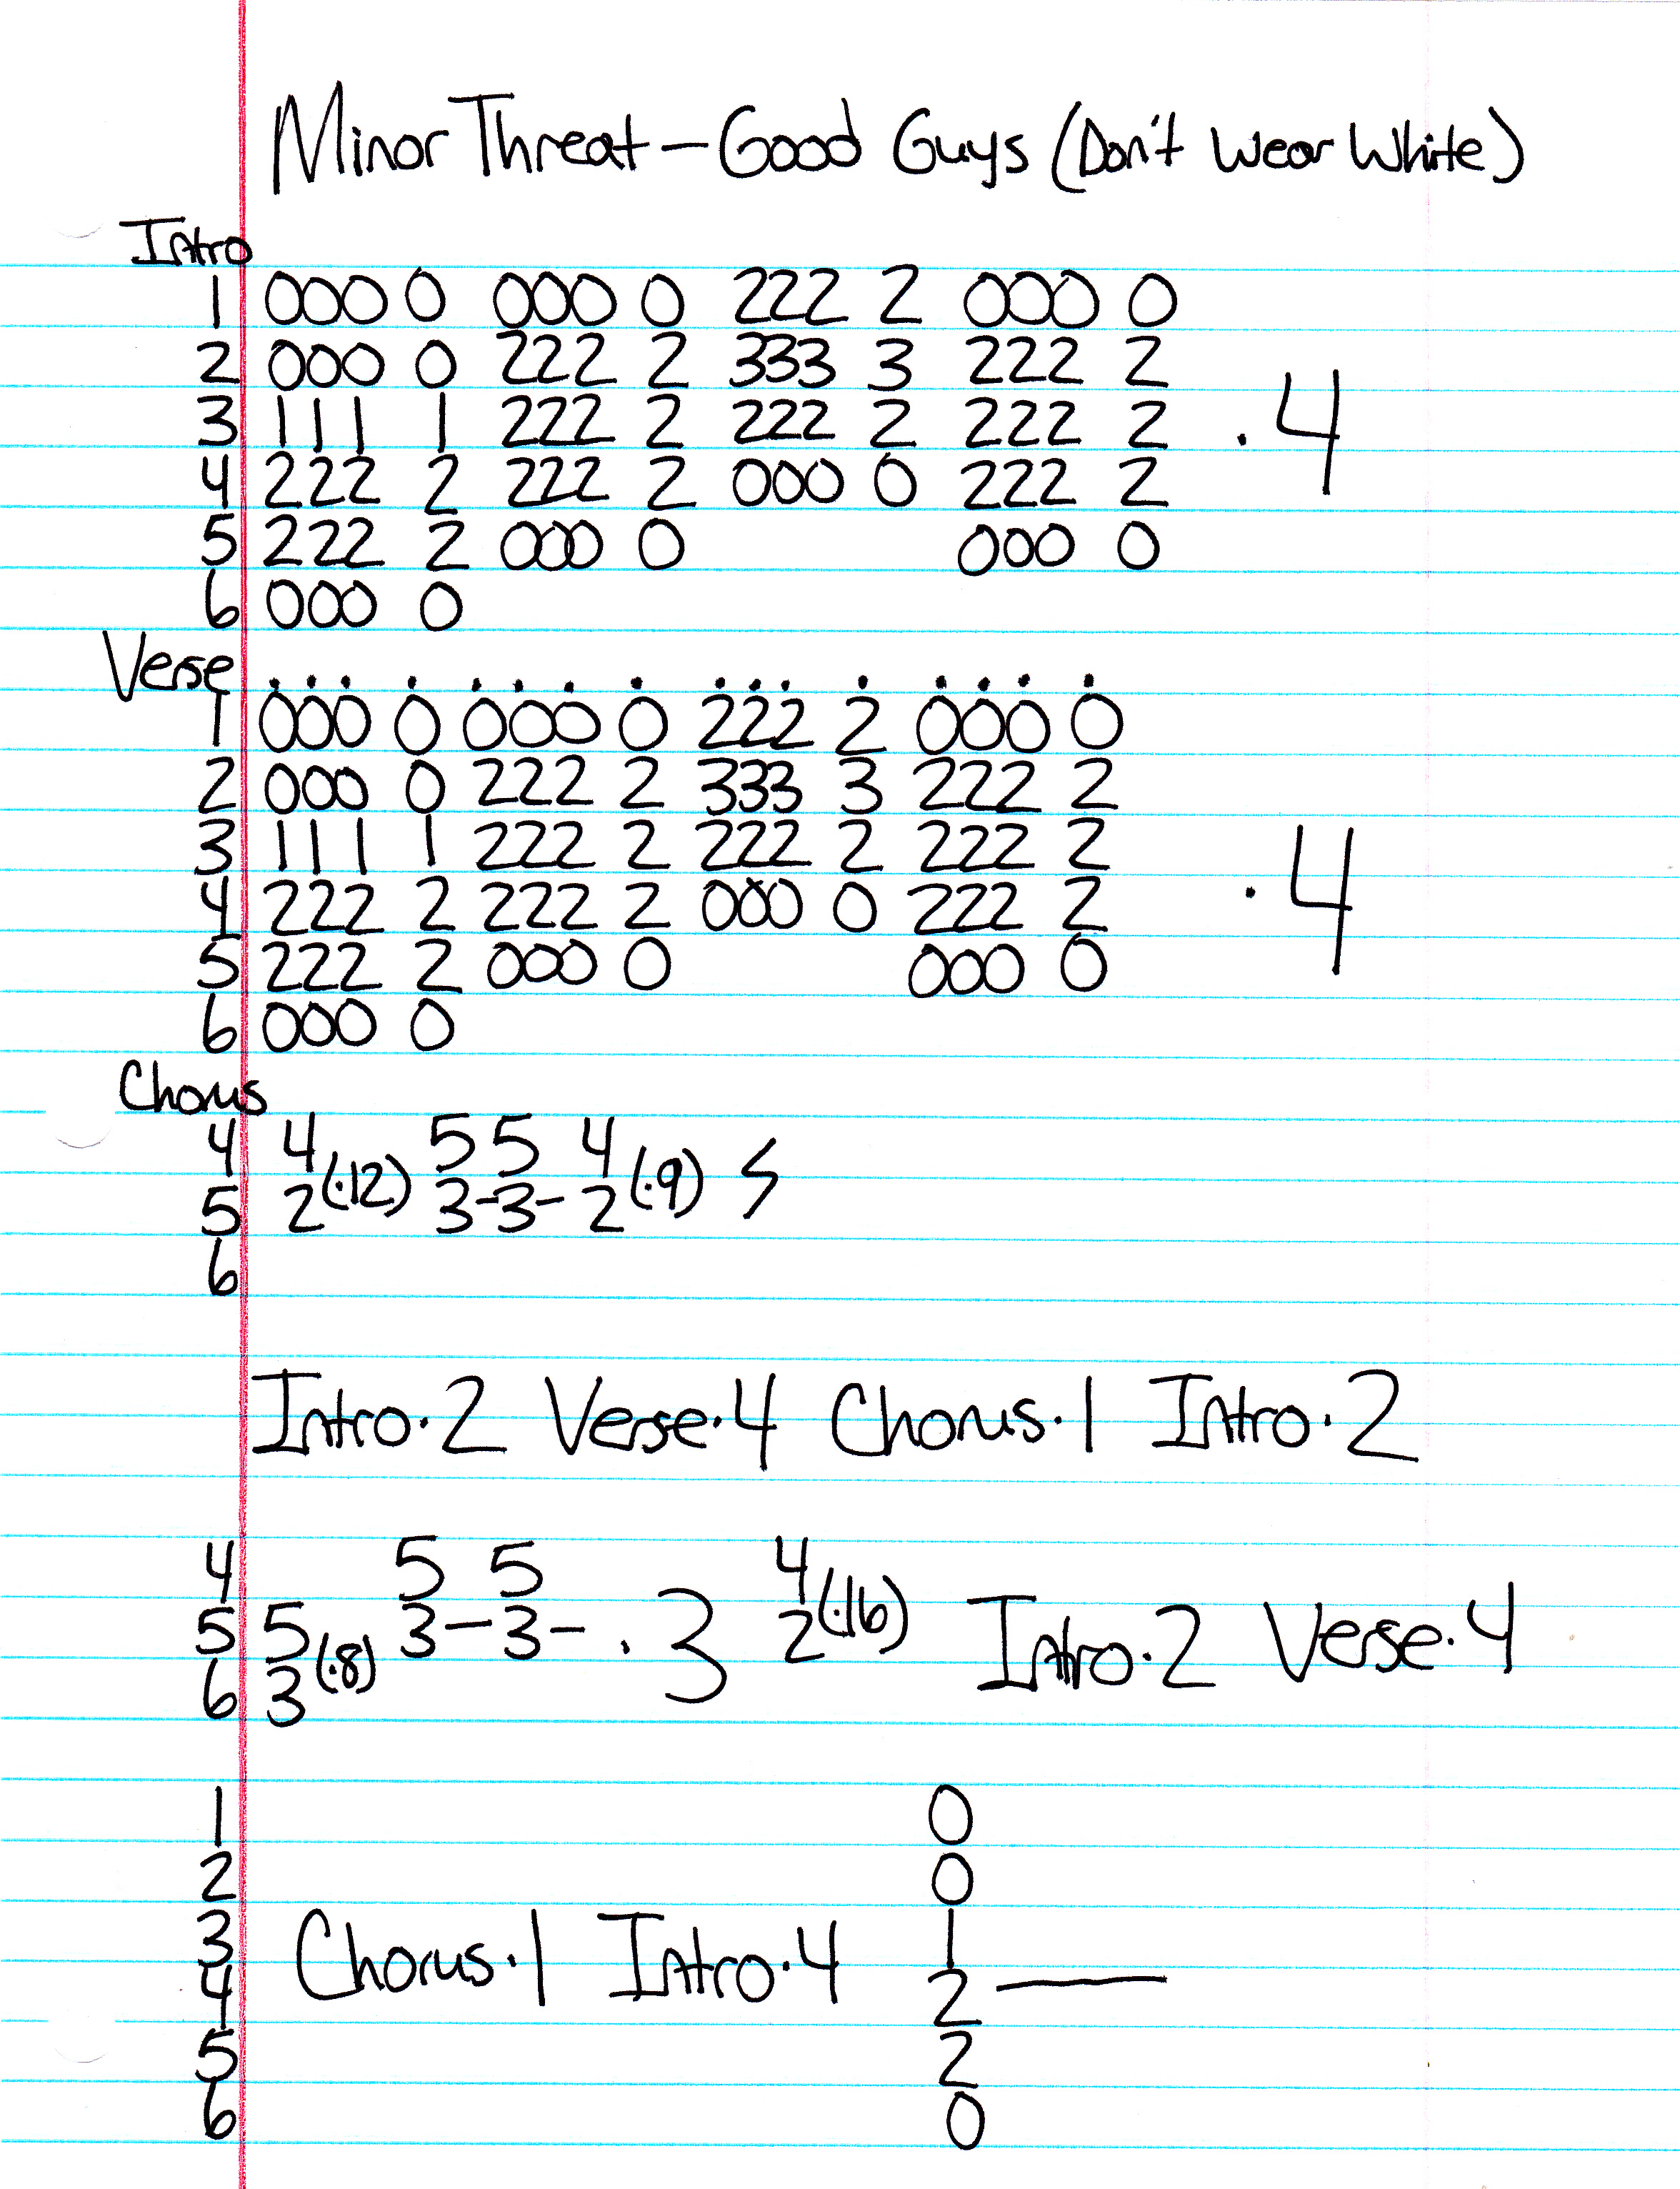 Minor Threat – Good Guys (Don't Wear White)
Intro
1 000 0 000 0 222 2 000 0
2 000 0 222 2 333 3 222 2
3 111 1 222 2 222 2 222 2 · 4
4 222 2 222 2 000 0 222 2
5 222 2 000 0 000 0
6 000 0
Verse . . . . . . . . . . . . . . . .
1 000 0 000 0 222 2 000 0
2 000 0 222 2 333 3 222 2
3 111 1 222 2 222 2 222 2
4 222 2 222 2 000 0 222 2 · 4
5 222 2 000 0 000 0
6 000 0
Chorus
4 4 5 5 4
5 2 (·12) 3-3- 2 (·9) 𝄽
6
Intro·2 Verse·4 Chorus·1 Intro·2
4 5 5 4
5 5 3–3– · 3 2 (·16) Intro·2 Verse·4
6 3 (·8)
1 0
2 0
3 1
4 Chorus·1 Intro·4 2 ——
5 2
6 0